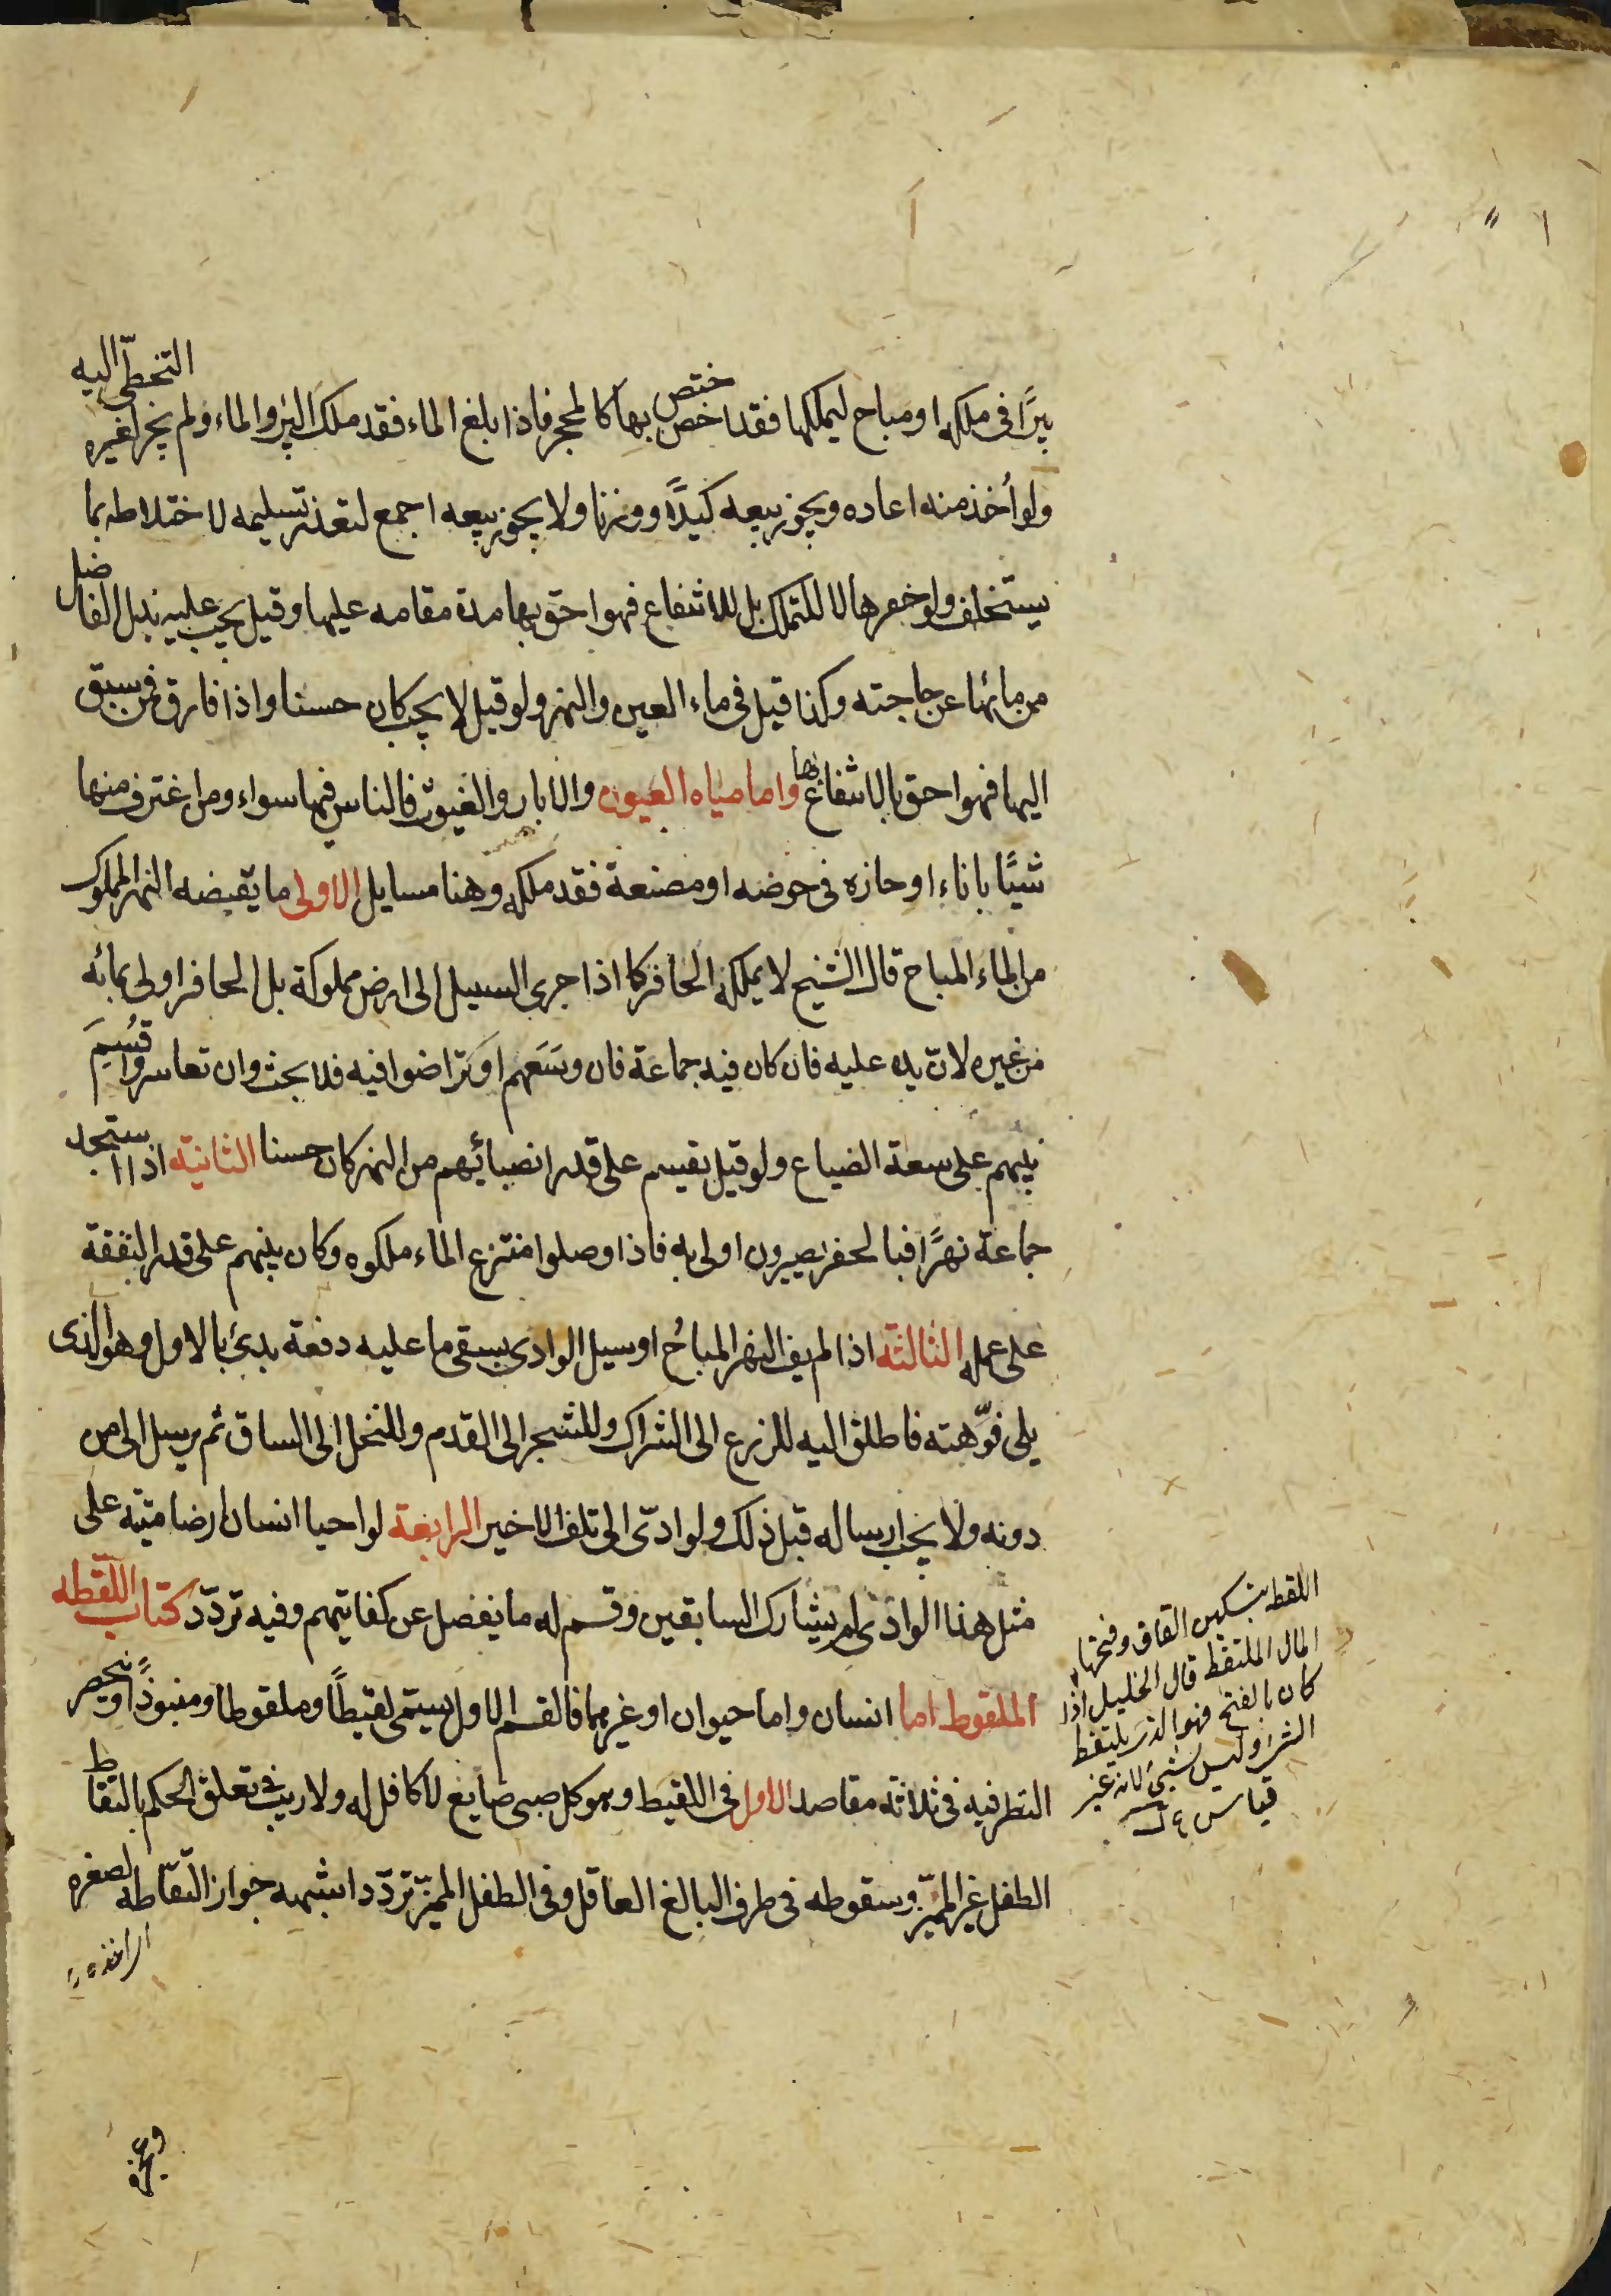 بيرًا في ملكه او مباح ليملكها فقد اختص بها كالمحجر فاذا بلغ الماء فقد ملك البئر والماء ولم يجز لغيره التخطّى اليه
ولو أخذ منه اعاده ويجوز بيعه كيلًا ووزنا ولا يجوز بيعه اجمع لتعذر تسليمه لاختلاطه بما
يستخلف ولو حفرها لا للتملك بل للانتفاع فهو احق بها مدة مقامه عليها وقيل يجب عليه بذل الفاضل
من مائها عن حاجته وكذا قيل في ماء العين والنهر ولو قيل لا يجب كان حسنا واذا فارق فمن سبق
اليها فهو احق بالانتفاع بها واما مياه العيون والابار والغيوث فالناس فيها سواء ومن اغترف منها
شيئًا باناء او حازه في حوضه او مصنعه فقد ملكه وهنا مسايل الاولى ما يقبضه النهر المملوك
من الماء المباح قال الشيخ لا يملكه الحافر كما اذا جرى السيل الى ارض مملوكة بل الحافر اولى بمائه
من غيره لانّ يده عليه فان كان فيه جماعة فان وسَعَهم او تراضوا فيه فلا بحث وان تعاسروا قُسِمَ
بينهم على سعة الضياع ولو قيل يقسم على قدر انصبائهم من النهر كان حسنا الثانية اذا استجد
جماعة نهرًا فبالحفر يصيرون اولى به فاذا وصلوا منتزع الماء ملكوه وكان بينهم على قدر النفقة
على عمله الثالثة اذا لم يف النهر المباح او سيل الوادى بسقى ما عليه دفعة بدئ بالاول وهو الذى
يلى فوّهته فاطلق اليه للزرع الى الشراك وللشجر الى القدم وللنخل إلى الساق ثم يرسل الى من
دونه ولا يجب ارساله قبل ذلك ولو ادّى الى تلف الاخير الرابعة لو احيا انسان ارضا ميتة على
مثل هذا الوادى لم يشارك السابقين وقسم له ما يفضل عن كفايتهم وفيه تردّد كتاب اللّقطه
الملقوط اما انسان واما حيوان او غيرهما فالقسم الاول يسمّى لقيطًا وملقوطا ومنبوذًا وينحصر
النظر فيه في ثلاثة مقاصد الاول في اللقيط وهو كل صبى ضايع لا كافل له ولا ريب في تعلق الحكم بالتقاط
الطفل غير المميّز وسقوطه في طرف البالغ العاقل وفى الطفل المميّز تردّد اشبهه جواز التقاطه لصغره
اللقطه بتسكين القاف وفتحها
المال الملتقط قال الخليل اذا
كان بالفتح فهو الذى يلتقط
الشئ وليس بشئ لانه غير
قياس
وعجزه